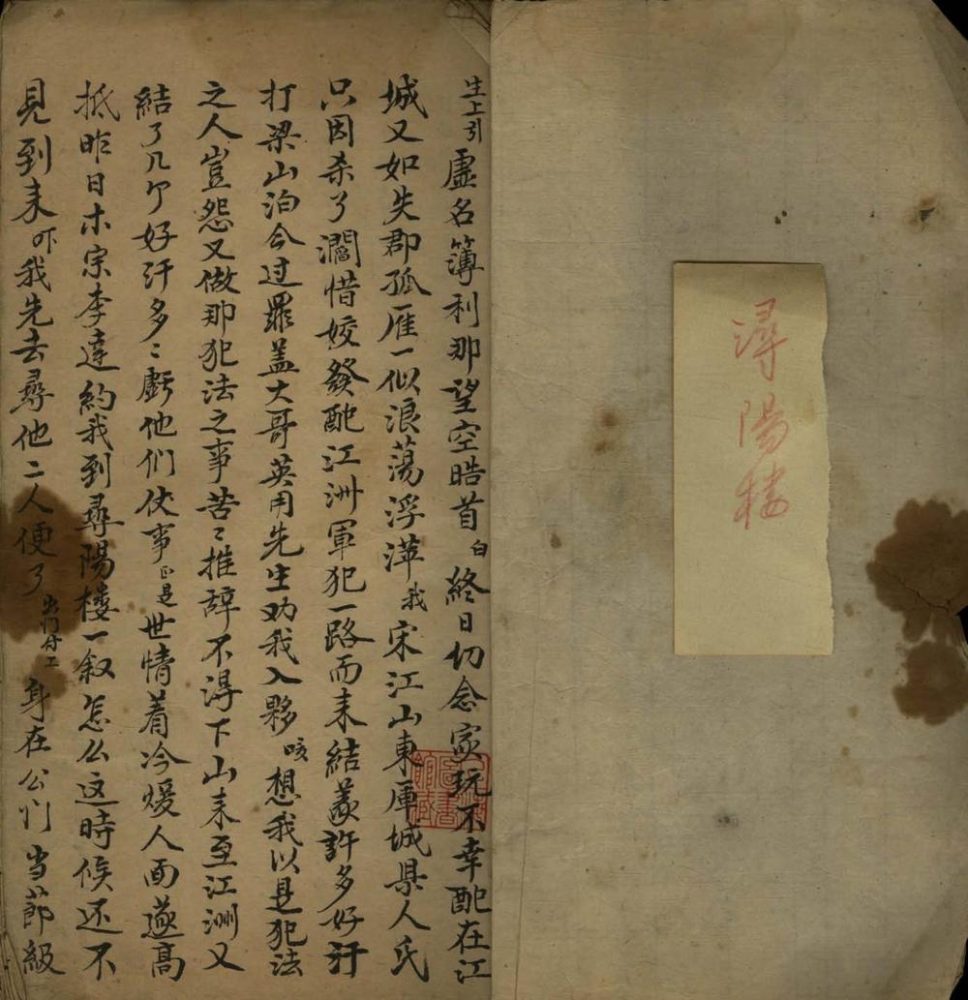 潯陽楼
生上引虛名簿利那望空皓首白終日切念家玩不幸配在江
城又如失郡孤雁一似浪蕩浮萍我宋江山東厙城県人氏
只因杀了濶惜姣發配江洲軍犯一路而耒結䒳許多好汗
打梁山泊仐过罪盖大哥英用先生劝我入夥咳想我以是犯法
之人豈怨又做那犯法之事苦〻推辞不淂下山耒至江洲又
結了几个好汗多〻虧他们使事正是世情着冷煖人面遂高
抵昨日木宗李逵約我到尋陽樓一叙怎么这時候还不
見到耒吓我先去尋他二人便了出门介工身在公们当莭級